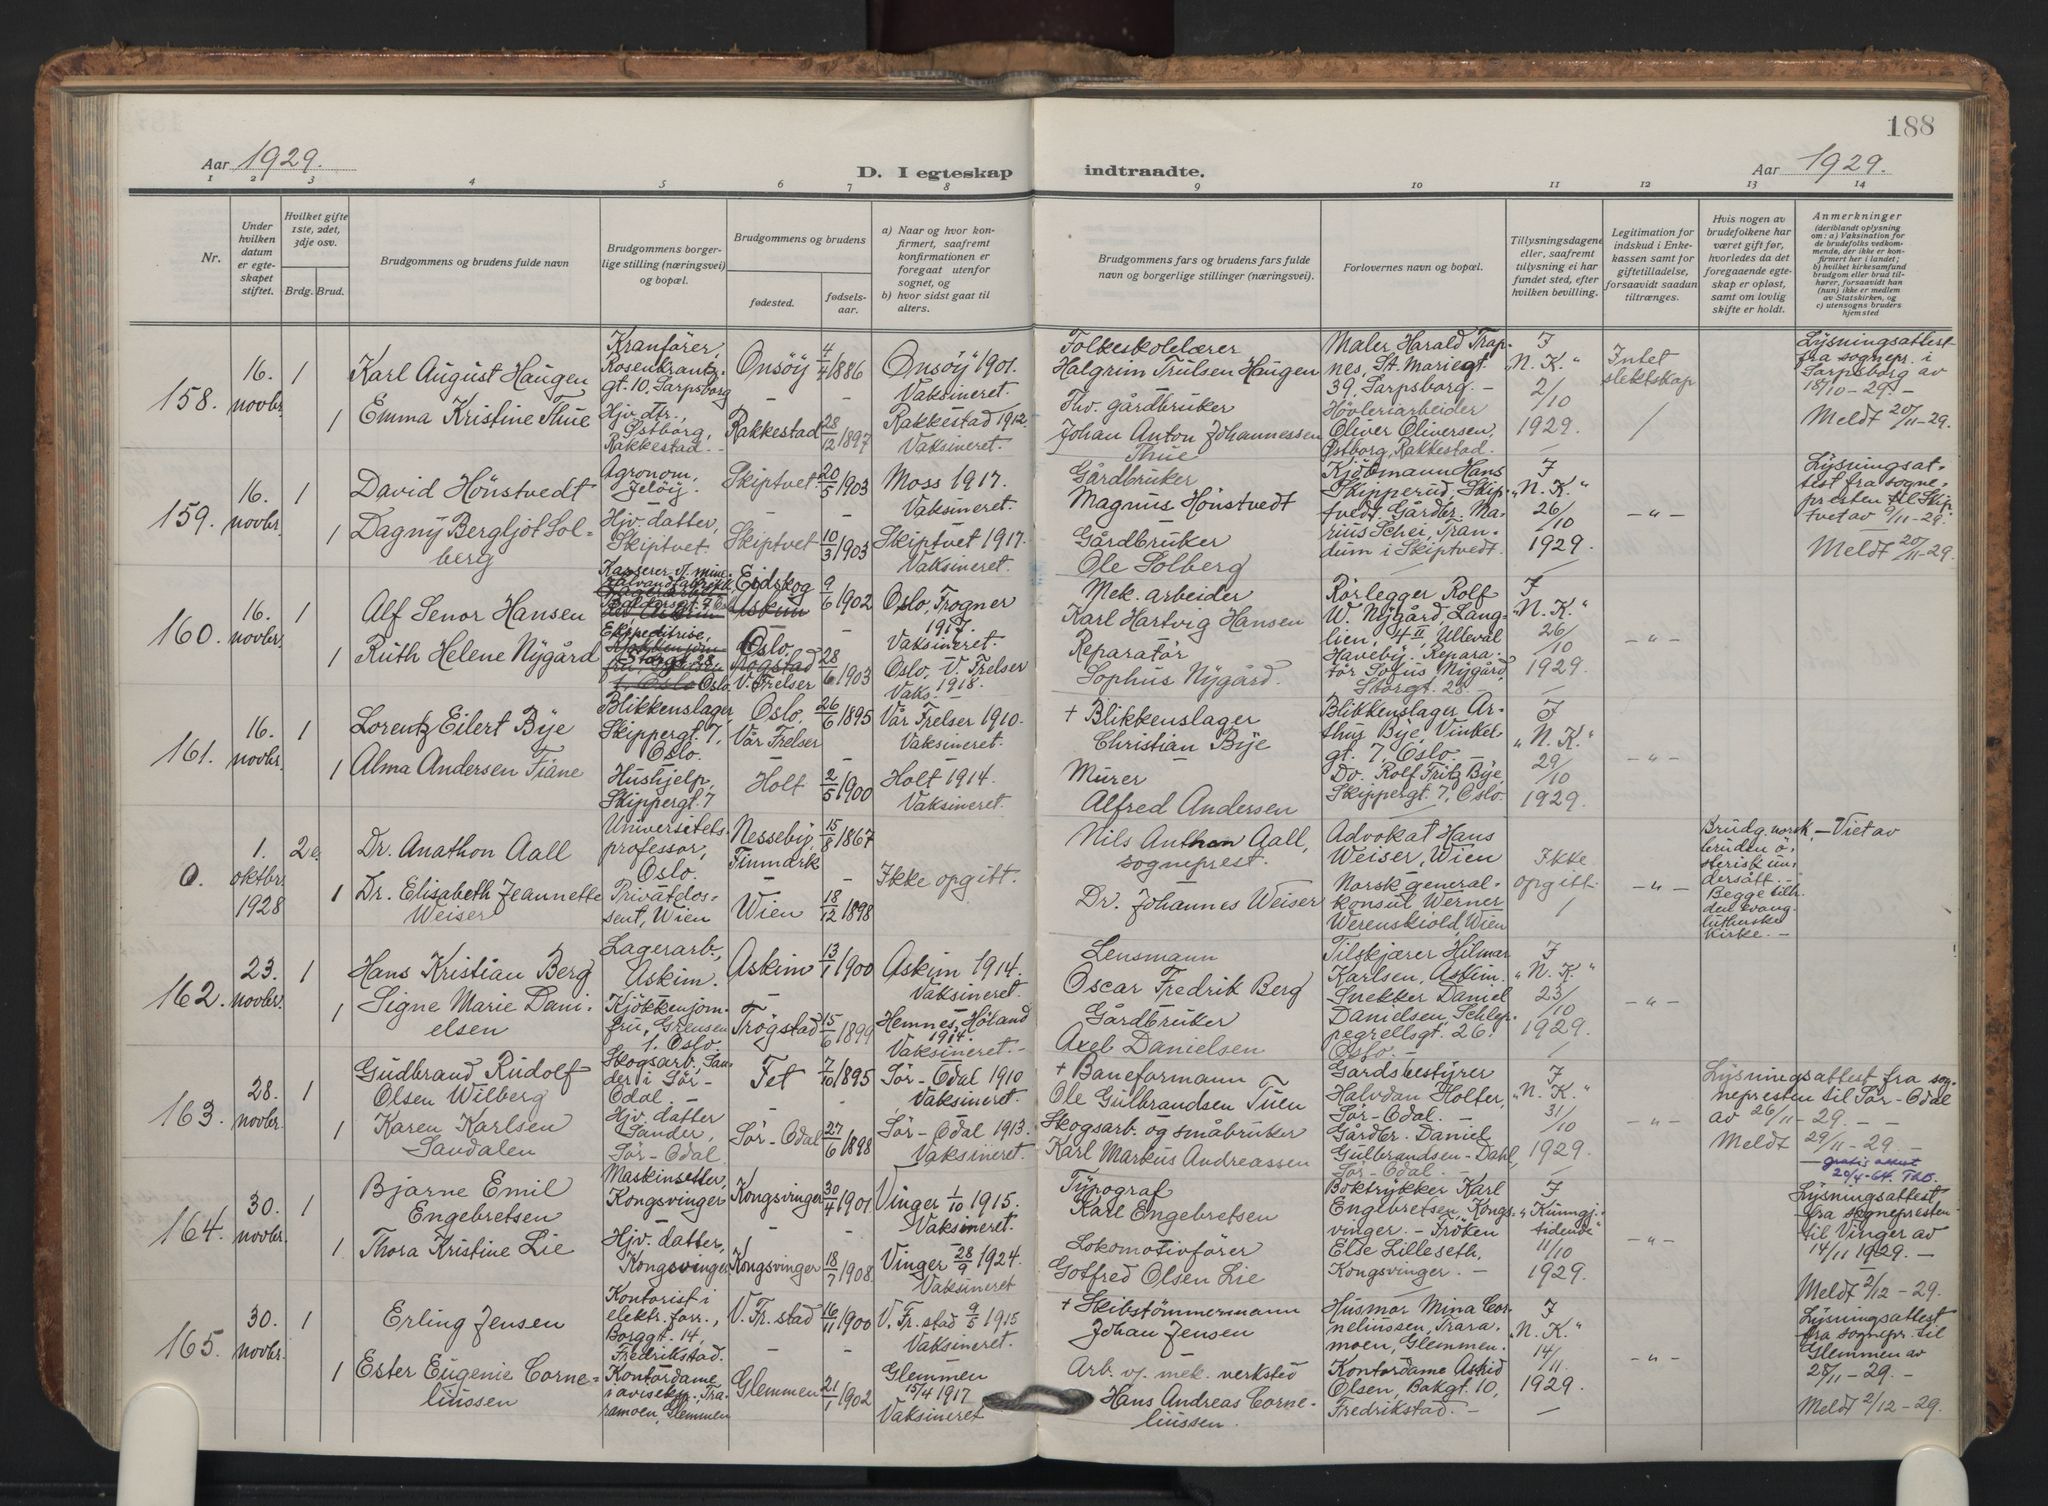 188
Aar 1929.
D. I egteskap indtraadte.
Aar 1929.
1 2 3 4 5 6 7 8 9 10 11 12 13 14
Nr.
Under
hvilken
datum
er egte-
skapet
stiftet.
Hvilket gifte
1ste, 2det,
3dje osv.
Brdg. Brud.
Brudgommens og brudens fulde navn
Brudgommens borger-
lige stilling (næringsvei)
og bopæl.
Brudgommens og brudens
fødested.
fødsels-
aar.
a) Naar og hvor kon-
firmert, saafremt
konfirmationen er
foregaat utenfor
sognet, og
b) hvor sidst gaat til
alters.
Brudgommens fars og brudens fars fulde
navn og borgerlige stillinger (næringsvei).
Forlovernes navn og bopæl.
Tillysningsdagene
eller, saafremt
tillysning ei har
fundet sted, efter
hvilken bevilling.
Legitimation for
indskud i Enke-
kassen samt for
giftetilladelse,
forsaavidt saadan
tiltrænges.
Hvis nogen av
brudefolkene har
været gift før,
hvorledes da det
foregaaende egte-
skap er opløst,
samt om lovlig
skifte er holdt.
Anmerkninger
(deriblandt oplysning
om: a) Vaksination for
de brudefolks vedkom-
mende, der ikke er kon-
firmert her i landet;
b) hvilket kirkesamfund
brudgom eller brud til-
hører, forsaavidt han
(hun) ikke er medlem
av Statskirken, og
c) utensogns bruders
hjemsted
158.
16.
novbr.
1
Karl August Haugen
Kranfører,
Rosenkrantz-
gt. 10, Sarpsborg
Onsöy
4/4 1886
Onsöy 1901.
Vaksineret.
Folkeskolelærer
Halgrim Trulsen Haugen
Maler Harald Trap-
nes, St. Mariegt.
39, Sarpsborg. -
I
"N. K."
2/10
1929.
Intet
slektskap
Lysningsattest
fra sognepr. i
Sarpsborg av
18/10-29. -
Meldt 20/11-29.
1
Emma Kristine Thue
Hjv. dtr.,
Østborg,
Rakkestad.
Rakkestad
28/12 1897
Rakkestad 1912.
Vaksineret.
Thv. gårdbruker
Johan Anton Johannessen
Thue
Høvleriarbeider
Oliver Oliversen,
Østborg, Rakkestad.
159.
16.
novbr.
1
David Hönstvedt
Agronom,
Jelöy.
Skiptvet
20/5 1903
Moss 1917.
Vaksineret.
Gårdbruker
Magnus Hönstvedt
Kjöbmann Hans
Skipperud, Skip-
tvedt. Gårdbr. Ma-
rius Schei, Tran-
dum i Skiptvedt.
I
"N. K."
26/10
1929.
- " -
Lysningsat-
test fra sogne-
presten til Skip-
tvet av 9/11-29.
Meldt 20/11-29.
1
Dagny Bergljot Sol-
berg
Hjv. datter,
Skiptvet.
Skiptvet
10/3 1903
Skiptvet 1917.
Vaksineret.
Gårdbruker
Ole Solberg
160.
16.
novbr.
1
Alf Senor Hansen
Eidskog
Askim
9/6 1902
Oslo, Trogner
1917.
Vaksineret.
Mek. arbeider
Karl Hartvig Hansen
Rörlegger Rolf
W. Nygård, Lang-
lien, 4 II, Ulleval
Haveby. Repara-
tör Sofus Nygård,
Storgt. 28 -
I
"N. K."
26/10
1929.
- " -
1
Ruth Helene Nygård
Ekspeditrise,
Storgt. 28
Oslo.
Oslo,
Trogstad
V. Frelser
28/6 1903
Oslo, V. Frelser
Vaks. 1918.
Reparatör
Sophus Nygård.
161.
16.
novbr.
1
Lorentz Eilert Bye
Blikkenslager,
Skippergt. 7,
Oslo.
Oslo,
Vår Frelser
26/6 1895
Vår Frelser 1910.
Vaksineret.
+ Blikkenslager
Christian Bye
Blikkenslager Ar-
thur Bye Vinker
gt. 7, Oslo. -
Do. Rolf Fritz Bye,
Skippergt. 7, Oslo.
I
"N. K."
29/10
1929.
- " -
1
Alma Andersen Fiane
Hushjelp,
Skippergt. 7
Holt
2/5 1900
Holt 1914.
Vaksineret.
Murer
Alfred Andersen
0.
1.
oktbr.
1928
2
Dr. Anathon Aall
Universitets-
professor,
Oslo.
Nesseby,
Finmark
15/8 1867
Ikke opgitt.
Nils Anthon Aall,
sogneprest.
Advokat Hans
Weiser, Wien
Norsk general-
konsul Werner
Werenskiold, Wien
Ikke
opgitt.
- " -
Brudg. norsk,
bruden ö-
sterisk un-
dersått. -
Begge tilh.
den evang.
lutherske
kirke. -
- Viet av
1
Dr. Elisabeth Jeannette
Weiser
Privatdos-
sent, Wien
Wien
18/12 1898
Dr. Johannes Weiser
162.
23.
novbr.
1
Hans Kristian Berg
Lagerarb.,
Askim.
Askim
13/1 1900
Askim 1914.
Vaksineret.
Lensmann
Oscar Fredrik Berg
Tilskjærer Hilmar
Karlsen, Askim.
Snekker Daniel
Danielsen, Schlep-
pegrellsgt. 26.
Oslo. -
I
"N. K."
23/10
1929.
- " -
1
Signe Marie Dani-
elsen
Kjökkenjom-
fru, Grensen
1. Oslo.
Trögstad
15/6 1899
Hemnes, Höland
1914.
Vaksineret. -
Gårdbruker
Axel Danielsen
163.
28.
novbr.
1
Gudbrand Rudolf
Olsen Wilberg
Skogsarb., San-
der i Sör-
Odal. -
Fet
7/10 1895
Sör-Odal 1910
Vaksineret.
+ Baneformann
Ole Gulbrandsen Tuen
Gårdsbestyrer
Halvdan Holter,
Sör-Odal. -
Gårdbr. Daniel
Gulbrandsen-Dahl,
Sör-Odal. -
I
"N. K."
31/10
1929.
- " -
Lysningsattest fra sog-
nepresten til Sör-Odal
av 26/11-29. - -
Meldt 29/11-29. -
gratis attest
20/4-64. ThO.
1
Karen Karlsen
Sandalen
Hjv. datter
Sander,
Sör-Odal
Sör-Odal
27/6 1898
Sör-Odal 1913.
Vaksineret.
Skogsarb. og småbruker
Karl Markus Andreassen
164.
30.
novbr.
1
Bjarne Emil
Engebretsen
Maskinsetter,
Kongsvinger
Kongsvinger
30/4 1901.
Vinger 1/10 1915.
Vaksineret.
Typograf
Karl Engebretsen
Boktrykker Karl
Engebretsen, Kongs-
vinger. - Fröken
Else Lilleseth,
Kongsvinger. -
I
"Kunngj.
tidende"
11/10
1929.
- " -
Lysningsattest
fra sognepresten
til Vinger av
14/11 1929. -
Meldt 2/12-29.
1
Thora Kristine Lie
Hjv. datter,
Kongsvinger
Kongsvinger
18/7 1908.
Vinger 28/9 1924.
Vaksineret
Lokomotivfører
Gotfred Olsen Lie
165.
30.
novbr.
1
Erling Jensen
Kontorist i
elektr. forr.,
Borggt. 14,
Fredrikstad.
V. Fr. stad
16/11 1900
V. Fr. stad 9/5 1915
Vaksineret.
+ Skibstömmermann
Johan Jensen
Husmor Mina Cor-
neliussen, Trara-
moen, Glemmen.
Kontordame Astrid
Olsen, Bakgt. 10,
Fredrikstad. -
I
"N. K."
14/11.
1929.
- " -
Lysningsattest
fra sognepr. til
Glemmen av
28/11-29. -
Meldt 2/12-29.
1
Ester Eugenie Corne-
liussen
Kontordame
i aviseksp., Tra-
ramoen, Glemmen
Glemmen
21/1 1902
Glemmen
15/4 1917
Vaksineret
Arb. v. mek. verksted
Hans Andreas Corne-
liussen.